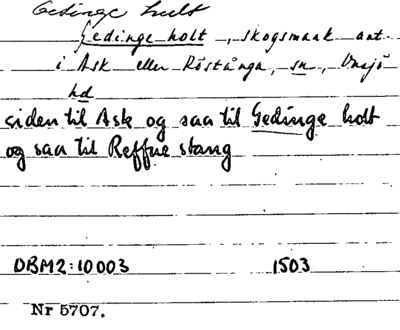 Gedinge hult
Gedinge holt, skogsmark ant.
i Ask eller Röstånga, sn, Onsjö
hd
siden til Ask og saa til Gedinge holt
og saa til Reffue stang
DBM2:10003 1503
Nr 5707.